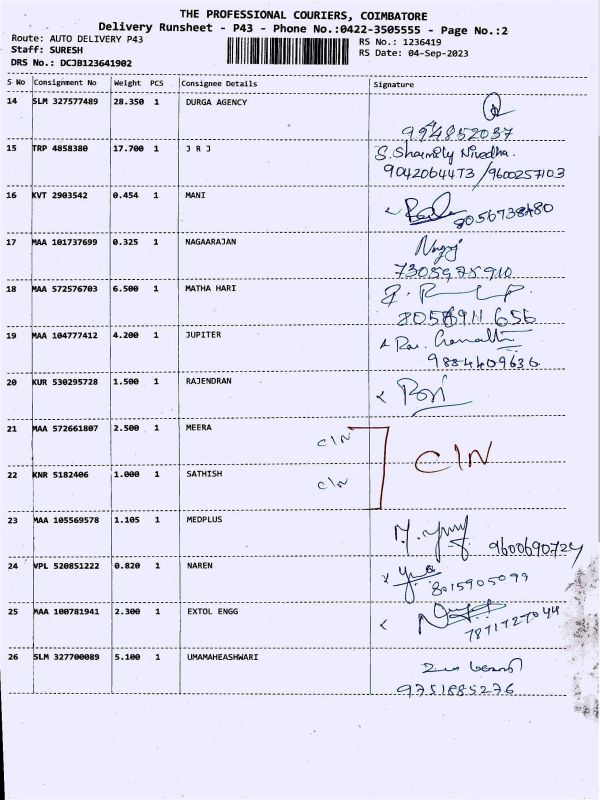 THE PROFESSIONAL COURIERS, COIMBATORE
Delivery Runsheet - P43 - Phone No.:0422-3505555 - Page No.:2
Route: AUTO DELIVERY P43 RS No.: 1236419
Staff: SURESH RS Date: 04-Sep-2023
DRS No.: DCJB123641902
S No Consignment No Weight PCS Consignee Details Signature
14 SLM 327577489 28.350 1 DURGA AGENCY
994852037
15 TRP 4858380 17.700 1 J R J S. Shamily Nivedha.
9042064473 / 9600257103
16 KVT 2903542 0.454 1 MANI
8056738480
17 MAA 101737699 0.325 1 NAGAARAJAN Nagaj
7305975910
18 MAA 572576703 6.500 1 MATHA HARI
8056911 656
19 MAA 104777412 4.200 1 JUPITER
9884409636
20 KUR 530295728 1.500 1 RAJENDRAN
21 MAA 572661807 2.500 1 MEERA C/N
C/N
22 KNR 5182406 1.000 1 SATHISH C/N
23 MAA 105569578 1.105 1 MEDPLUS
9600690724
24 VPL 520851222 0.820 1 NAREN
8015905099
25 MAA 100781941 2.300 1 EXTOL ENGG
7871727044
26 SLM 327700089 5.100 1 UMAMAHEASHWARI
9751885276